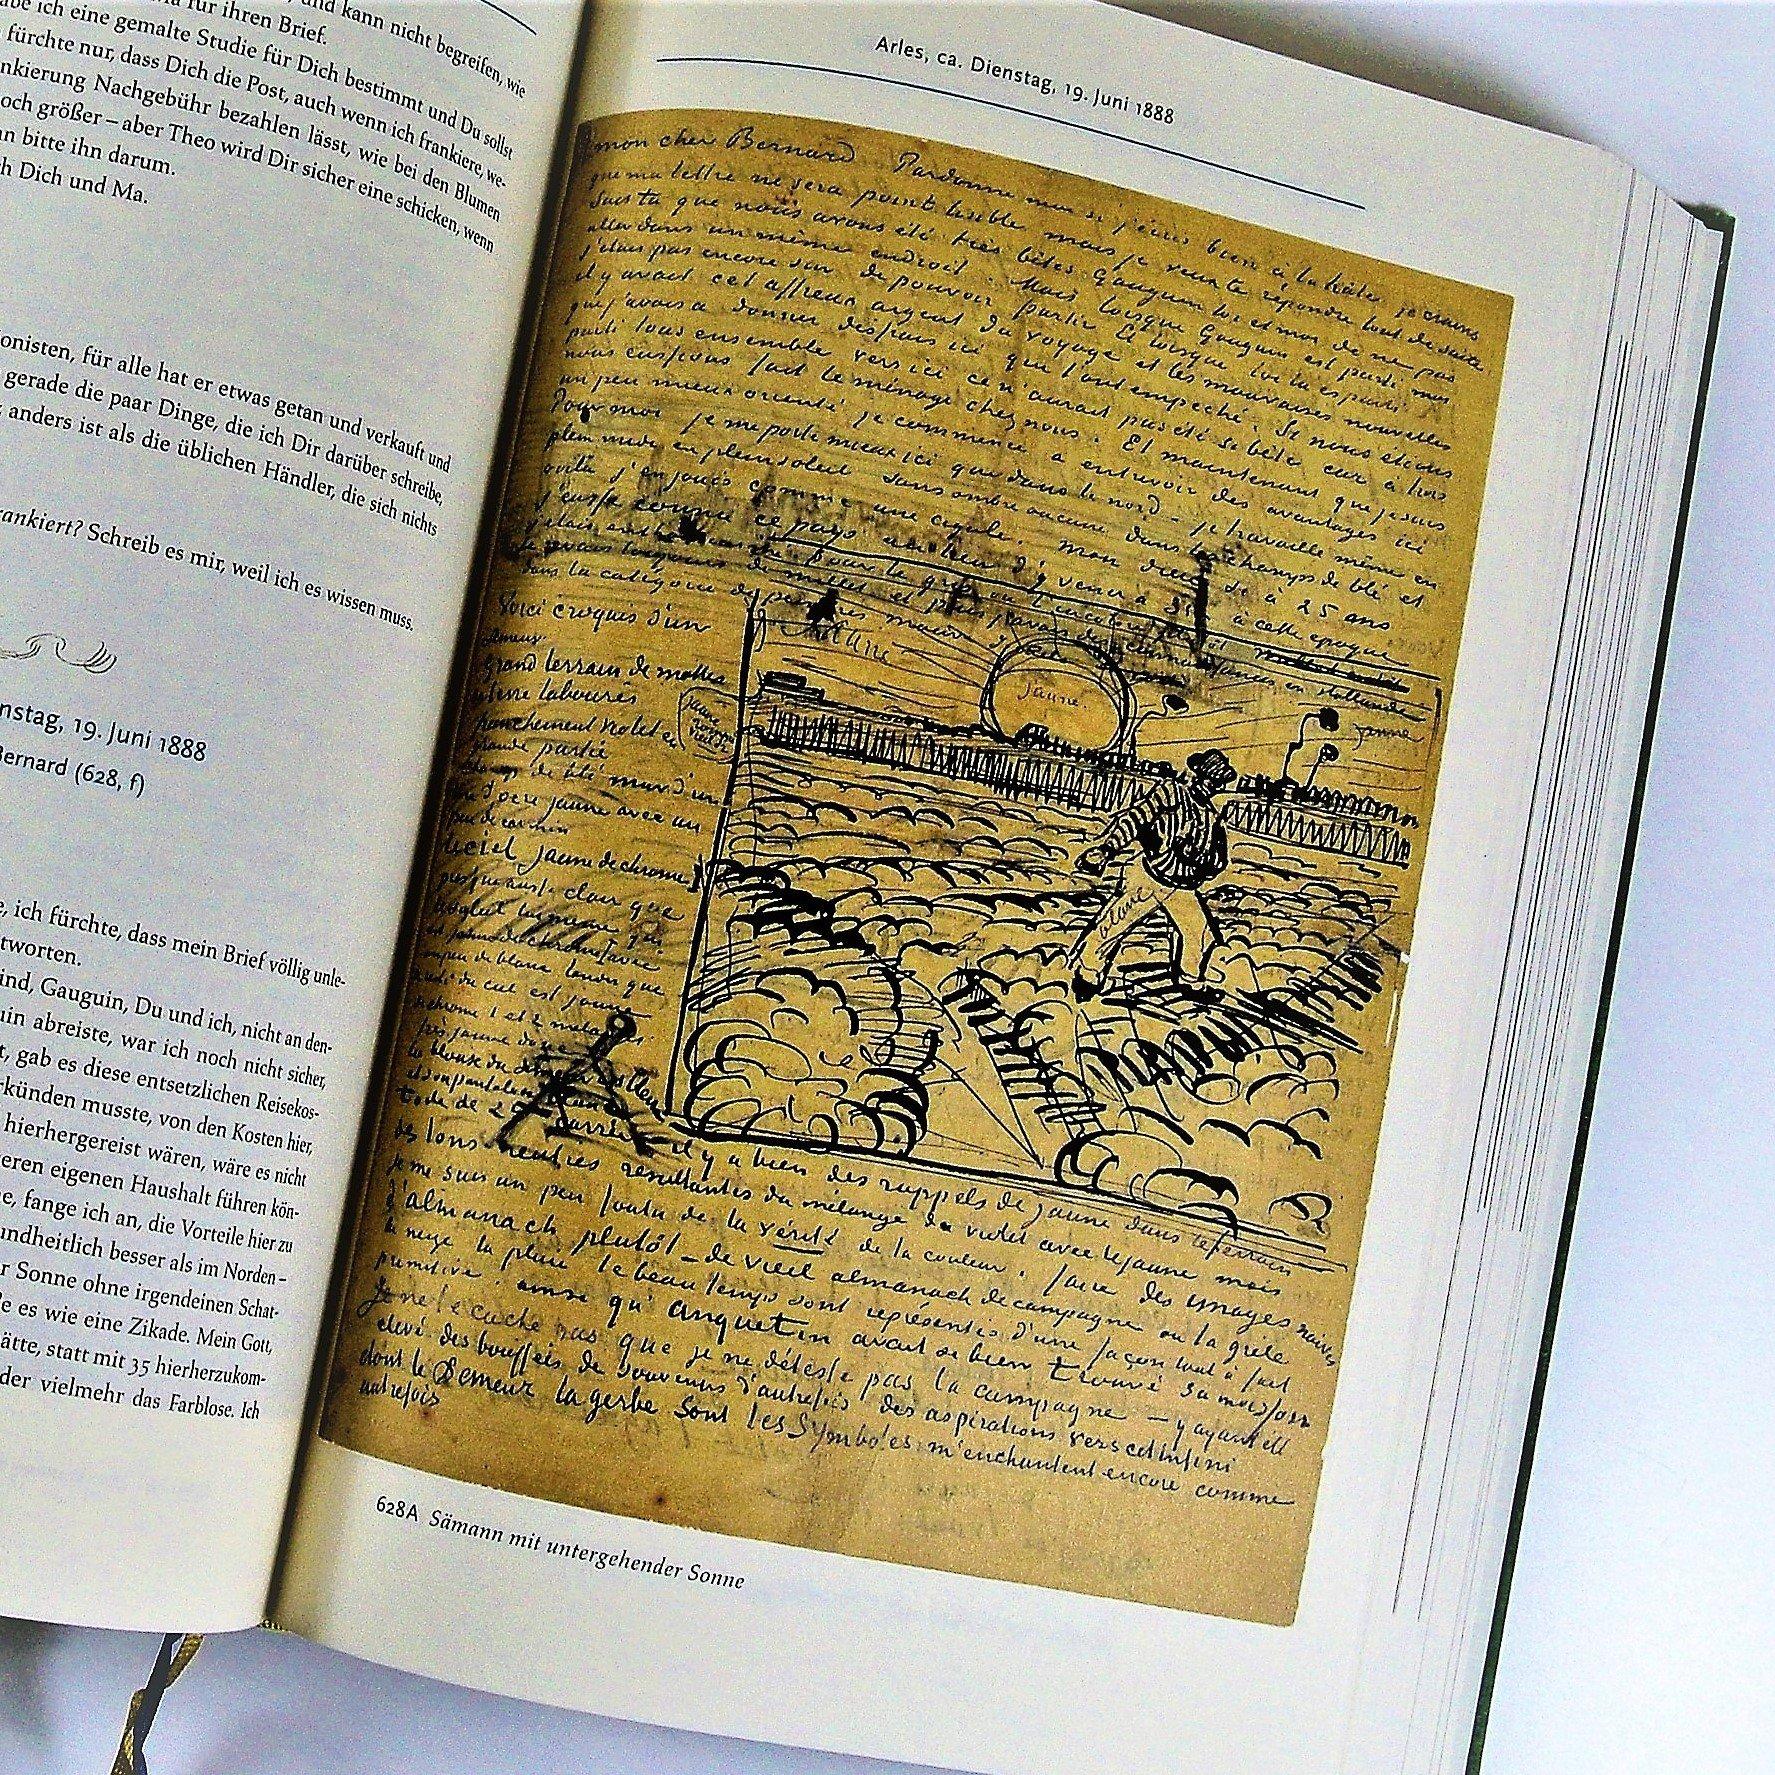 und kann nicht begreifen, wie
für ihren Brief.
ich eine gemalte Studie für Dich bestimmt und Du sollst
fürchte nur, dass Dich die Post, auch wenn ich frankiere, we-
nkierung Nachgebühr bezahlen lässt, wie bei den Blumen
och größer – aber Theo wird Dir sicher eine schicken, wenn
nn bitte ihn darum.
ch Dich und Ma.
onisten, für alle hat er etwas getan und verkauft und
gerade die paar Dinge, die ich Dir darüber schreibe,
anders ist als die üblichen Händler, die sich nichts
rankiert? Schreib es mir, weil ich es wissen muss.
nstag, 19. Juni 1888
Bernard (628, f)
, ich fürchte, dass mein Brief völlig unle-
tworten.
ind, Gauguin, Du und ich, nicht an den-
uin abreiste, war ich noch nicht sicher,
t, gab es diese entsetzlichen Reisekos-
rkünden musste, von den Kosten hier,
hierhergereist wären, wäre es nicht
eren eigenen Haushalt führen kön-
e, fange ich an, die Vorteile hier zu
undheitlich besser als im Norden –
r Sonne ohne irgendeinen Schat-
e es wie eine Zikade. Mein Gott,
ätte, statt mit 35 hierherzukom-
der vielmehr das Farblose. Ich
Arles, ca. Dienstag, 19. Juni 1888
mon cher Bernard Pardonne moi si j'écris bien à la hâte, je crains
que ma lettre ne sera point lisible mais je veux te répondre tout de suite.
Sais tu que nous avons été très bêtes Gauguin toi et moi de ne pas
aller dans un même endroit. Mais lorsque Gauguin est parti moi
j'étais pas encore sûr de pouvoir partir Et lorsque toi tu es parti
il y avait cet affreux argent du voyage et les mauvaises nouvelles
que j'avais à donner des frais ici qui l'ont empêché. Si nous étions
parti tous ensemble vers ici ce n'aurait pas été si bête car à trois
nous eussions fait le ménage chez nous. Et maintenant que je suis
un peu mieux orienté je commence à entrevoir des avantages ici
Pour moi je me porte mieux ici que dans le nord – je travaille même en
plein midi en plein soleil sans ombre aucune dans les champs de blé et
voilà j'en jouis comme une cigale. Mon dieu si à 25 ans
j'eusse connu ce pays au lieu d'y venir à 35 – à cette époque
dans la catégorie
Voici croquis d'un
Semeur.
grand terrain de mottes
de terre labourés
franchement violet en
grande partie
champ de blé mûr d'un
ton d'ocre jaune avec un
peu de carmin
Le ciel jaune de chrome 1
presqu'aussi clair que
jaune
violet
Jaune
jaune
blanc
la blouse du semeur est bleue
et son pantalon blanc
toile de 25 carrée
il y a bien des rappels de jaune dans le terrain
des tons neutres résultantes du mélange du violet avec le jaune mais
je me suis un peu foutu de la vérité de la couleur. faire des images naïves
d'almanach plutôt – de vieil almanach de campagne où la grêle
la neige la pluie le beau temps sont représentés d'une façon tout à fait
primitive. ainsi qu'anquetin avait si bien trouvé sa moisson
Je ne te cache pas que je ne déteste pas la campagne – y ayant été
élevé des bouffées de souvenirs d'autrefois des aspirations vers cet infini
dont le Semeur la gerbe sont les Symboles m'enchantent encore comme
autrefois
628A Sämann mit untergehender Sonne